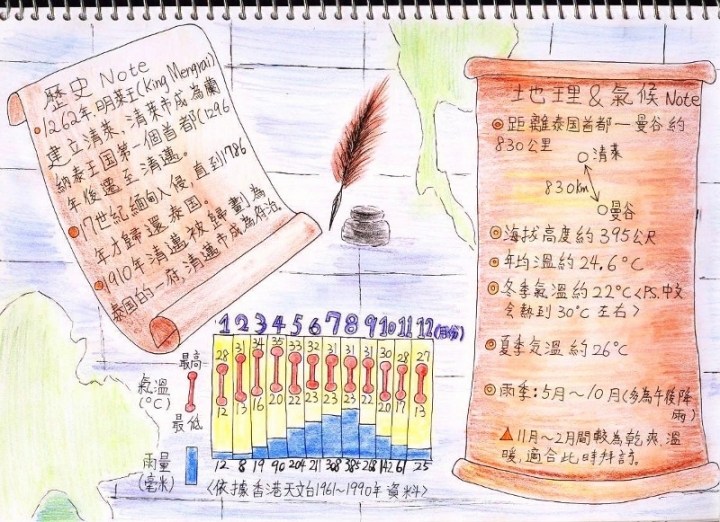 歷史 Note
1262年,明萊王(King Mengrai)
建立清萊、清萊市成為蘭
納泰王国第一個首都(1296
年後遷至清邁。
17世紀緬甸入侵,直到1786
年才歸還泰国。
1910年清邁被歸劃為
泰国的一府,清邁市成為府治。
地理&氣候 Note
距離泰国首都—曼谷約
830公里
清萊
830km
曼谷
海拔高度約395公尺
年均溫約24.6°C
冬季氣溫約22°C<PS.中文
会熱到30°C左右>
夏季气溫約26°C
雨季:5月~10月(多為午後降
雨)
11月~2月間較為乾爽、溫
暖,適合此時拜訪。
1 2 3 4 5 6 7 8 9 10 11 12 (月份)
最高
28 31 34 35 33 32 31 31 31 30 28 27
氣溫
(°C)
12 13 16 20 22 23 23 23 22 20 17 13
最低
雨量
(毫米)
12 8 19 90 204 211 308 385 268 142 61 25
<依據香港天文台1961~1990年資料>